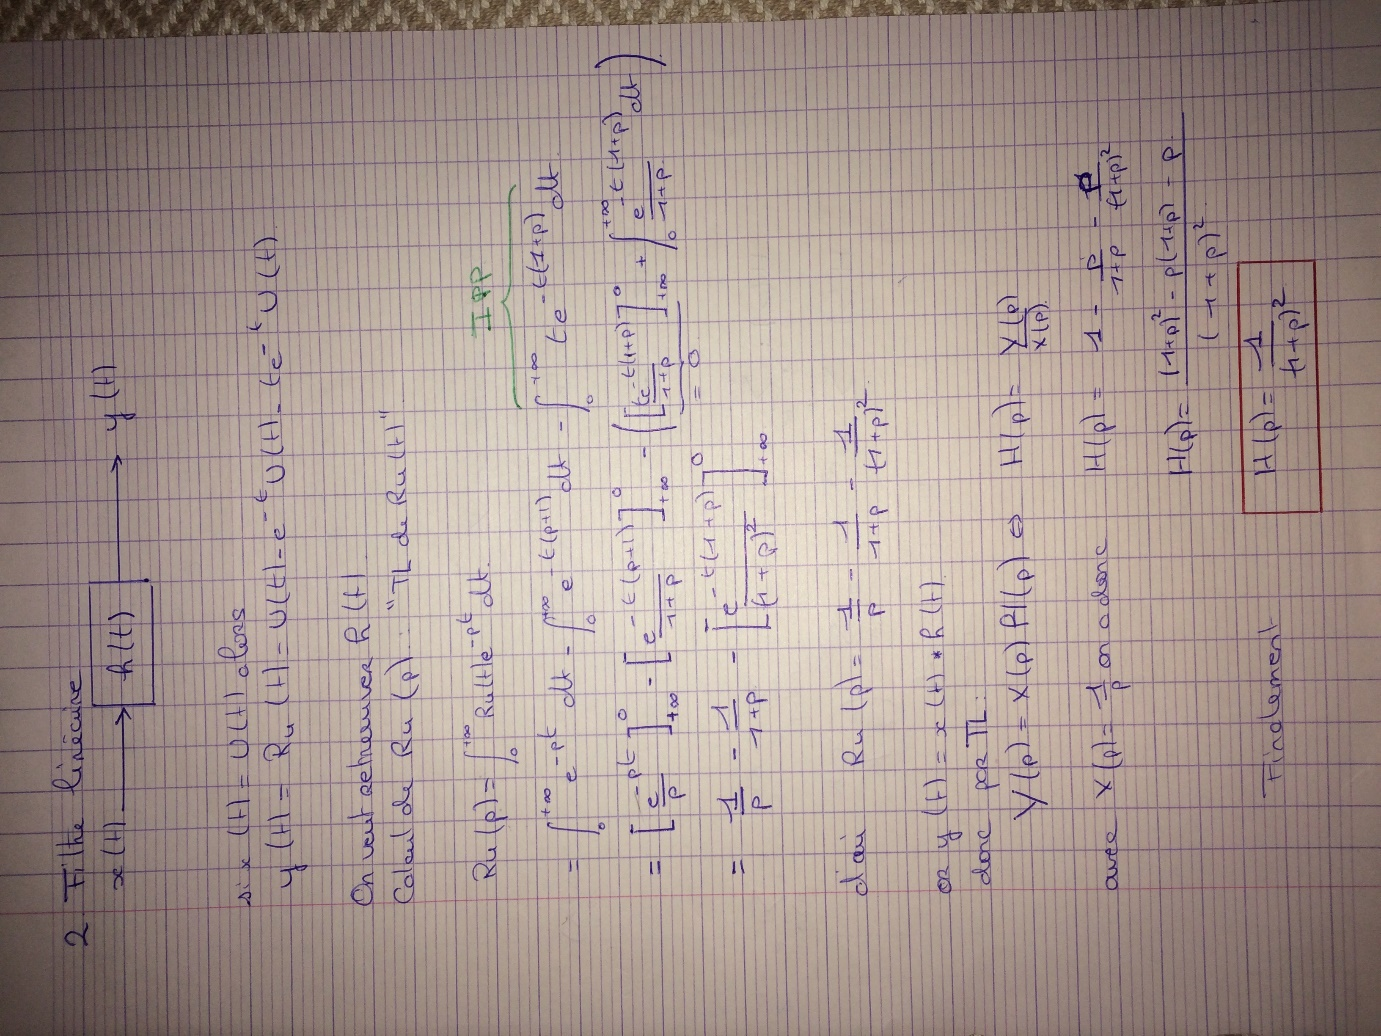 2. Filtre linéaire
x(t) → h(t) → y(t)
si x(t) = U(t) alors
y(t) = Ru(t) = U(t) - e^{-t} U(t) - te^{-t} U(t).
On veut retrouver h(t)
Calcul de Ru(p) : "TL de Ru(t)"
IPP
Ru(p) = ∫_0^{+∞} Ru(t) e^{-pt} dt.
= ∫_0^{+∞} e^{-pt} dt - ∫_0^{+∞} e^{-t(p+1)} dt - ∫_0^{+∞} te^{-t(1+p)} dt.
= [e^{-pt}/p]_{+∞}^0 - [e^{-t(p+1)}/(1+p)]_{+∞}^0 - ([te^{-t(1+p)}/(1+p)]_{+∞}^0 + ∫_0^{+∞} e^{-t(1+p)}/(1+p) dt)
= 0
= 1/p - 1/(1+p) - [e^{-t(1+p)}/(1+p)^2]_{+∞}^0
d'où Ru(p) = 1/p - 1/(1+p) - 1/(1+p)^2
or y(t) = x(t) * h(t)
donc par TL :
Y(p) = X(p) H(p) ⇔ H(p) = Y(p)/X(p).
avec X(p) = 1/p on a donc H(p) = 1 - p/(1+p) - p/(1+p)^2
H(p) = ((1+p)^2 - p(1+p) - p)/(1+p)^2
Finalement H(p) = 1/(1+p)^2